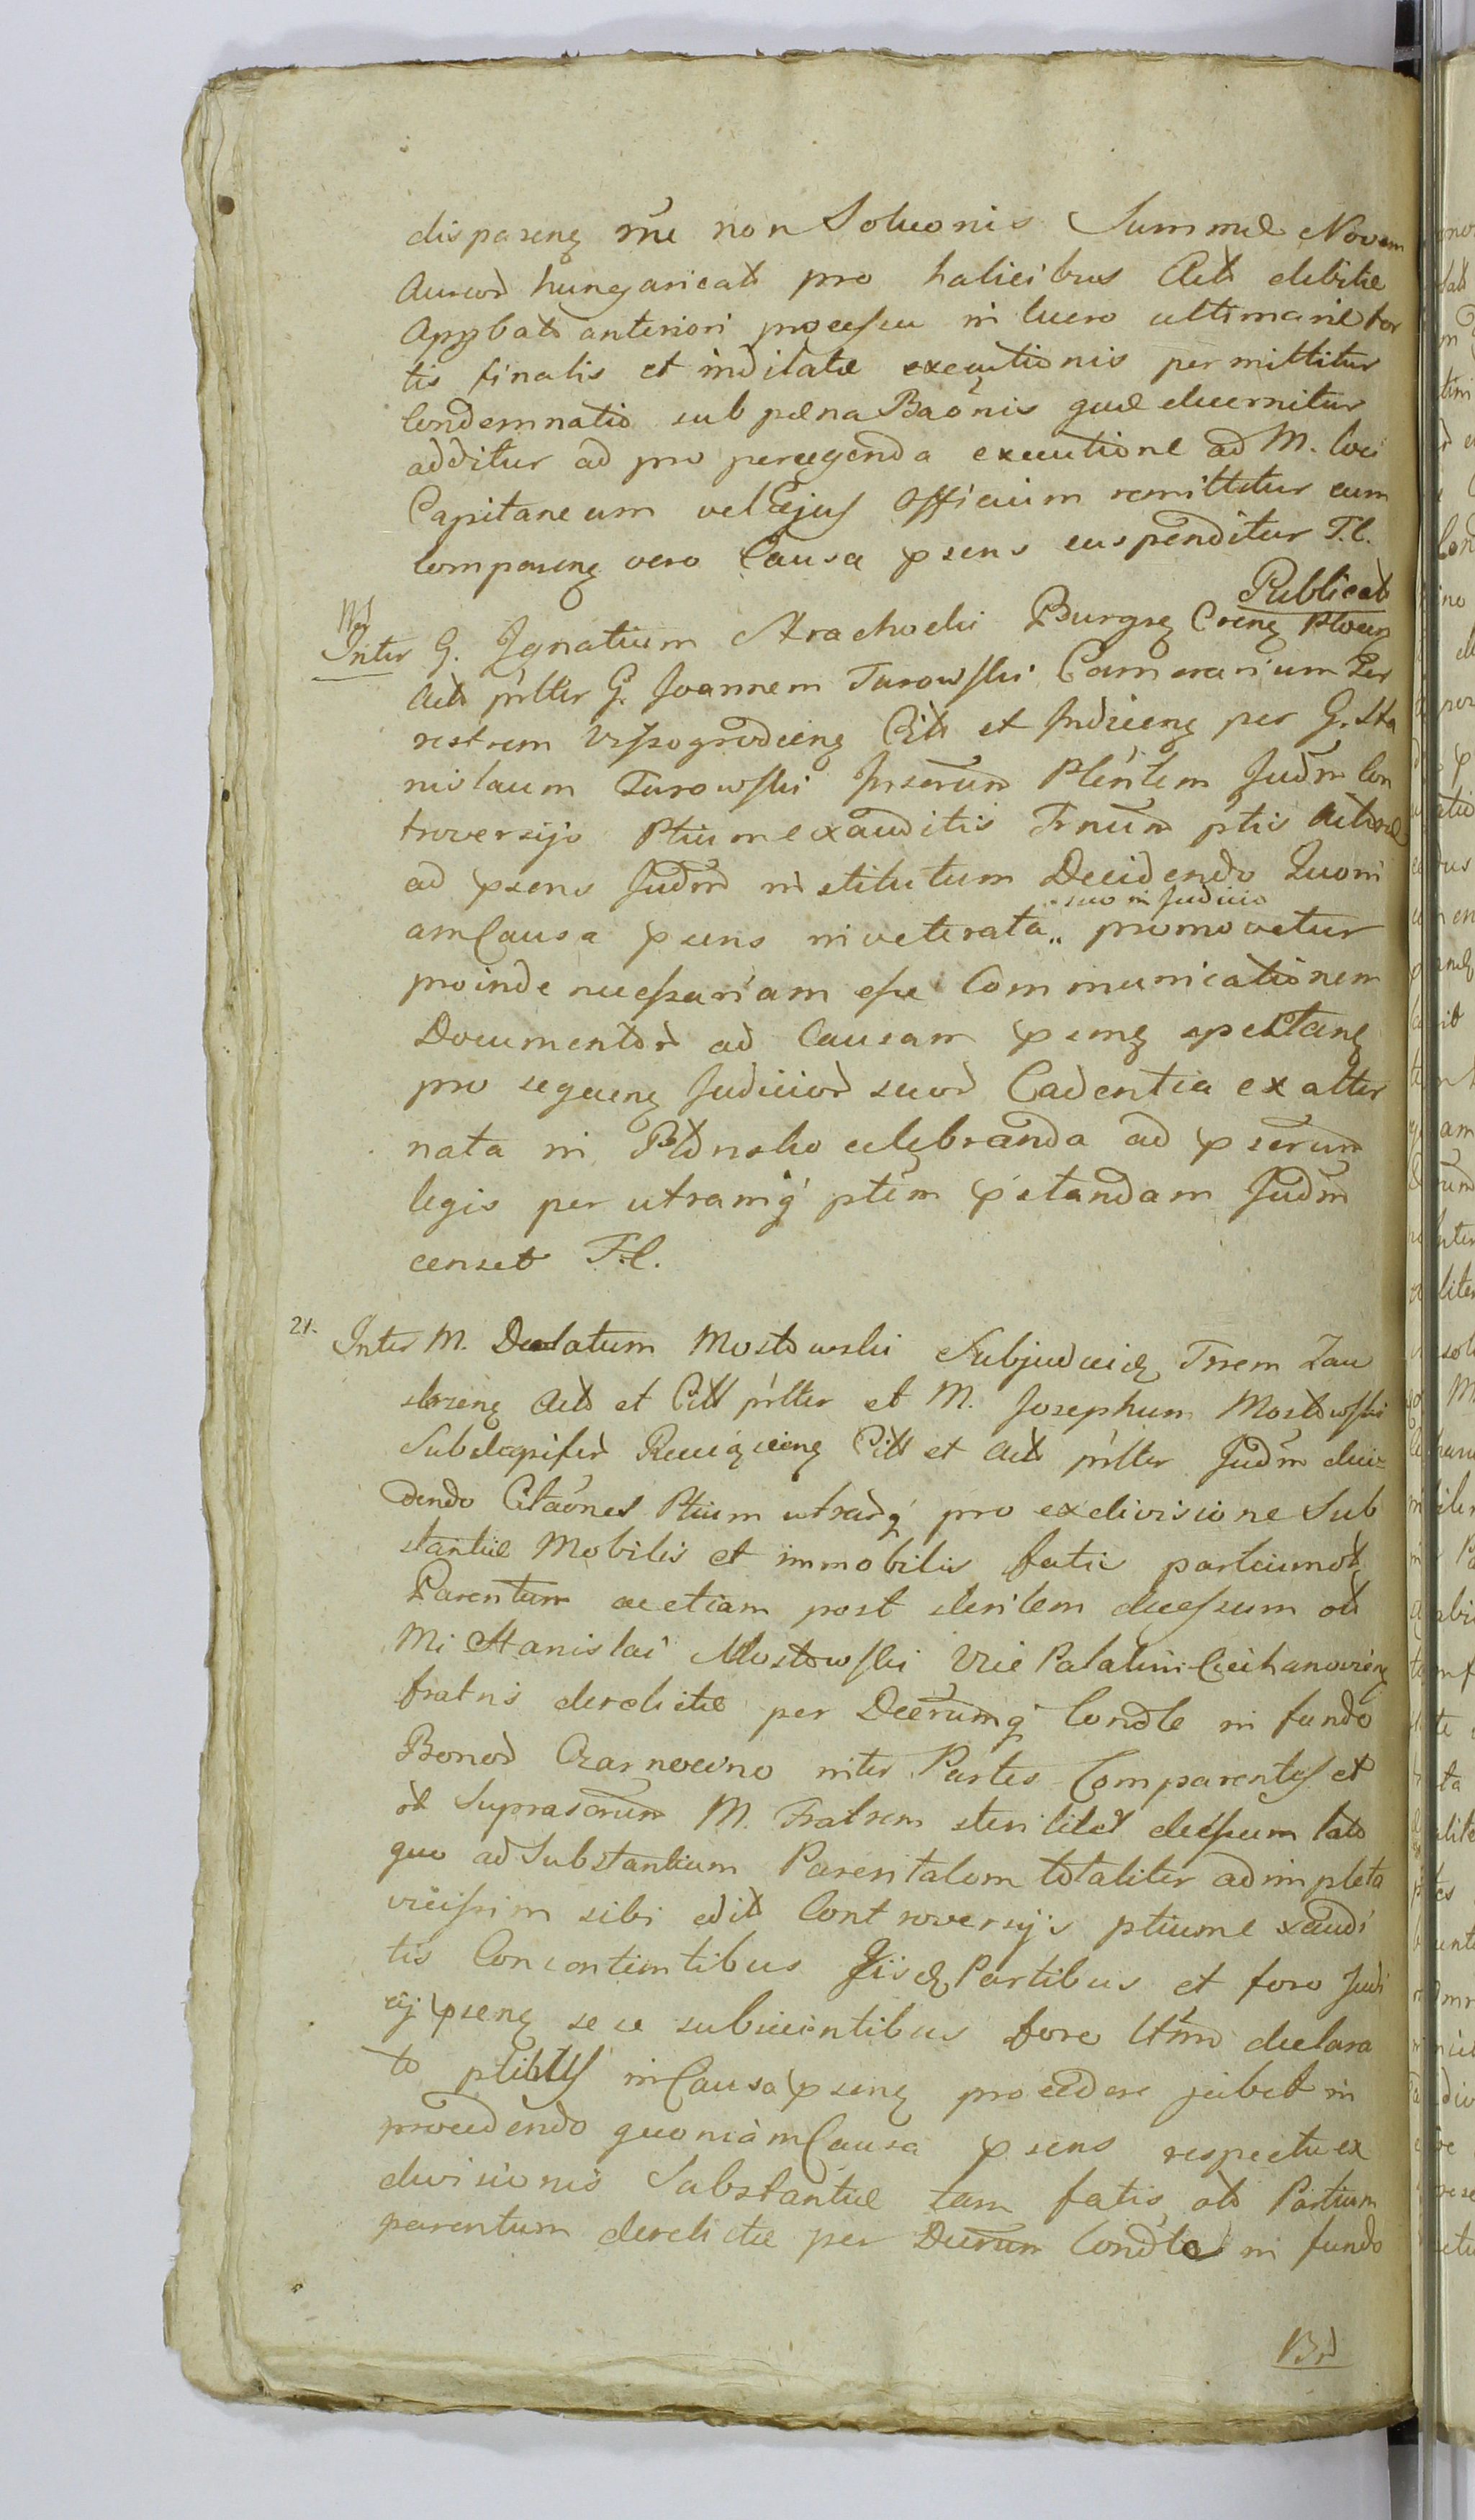 disparenꝫ rne non Soluonis Summæ Novem
Aureor hungaricał pro halicibus Act debitæ
Appbat anteriori processu in lucro ultimariæ for
tis finalis et inditatæ executionis permittitur
Condemnatio sub pæna Baonis quæ decernitur
additur ad pro peragenda executione ad M. loci
Capitaneum vel Ejus Officium remittitur cum
Comparenꝫ vero Causa psens suspenditur T.C.
Publicat
Inter G. Ignatium Strachocki Burgrꝫ Crenꝫ Plocen
Act prlter G. Joannem Turowski Camerarium Ter
restrem Vyszogrodienꝫ Citt et Inducenꝫ per G. Sta
nislaum Turowski Insertum Plentem Judm Con
troversijs Ptium exauditis Trnum ptis Actoræ
ad psens Judm institutum Decidendo Quoni
suo in Judicio
am Causa psens inveterata „ promovetur
proinde necessariam esse Communicationem
Documentor ad Causam psenꝫ spectanꝫ
pro sequenꝫ Judicior suor Cadentia ex alter
nata in Płonsko celebranda ad pserum
legis per utramq ptem pstandam Judm
censet T.C.
21. Inter M. Deodatum Mostowski Subjudicꝫ Trrem Zau
skrzenꝫ Act et Citt prlter et M. Josephum Mostowski
Subdapifer Raciązienꝫ Citt et Act prlter Judm deci=
dendo Citaones Ptium utrarq pro exdivisione Sub
stantiæ Mobilis et immobilis fatis partiumot
Parentum ac etiam post sterilem decessum oti
Mi Stanislai Mostowski Vice Palatini Ciechanovienꝫ
fratris derelictæ per Decrumq Condle in fundo
Bonor Czarnocino inter Partes Comparentes et
ot Suprascrum M. Fratrem steriliter decessum lato
quo ad Substantium Parentalem totaliter adimpleta
vicissim sibi edit Controversijs ptiume xaudi
tis Concontientibus Jisdꝫ Partibus et foro Judi
cij psenꝫ sese subjicientibus fore Itmo declara
to ptibus in Causa psenꝫ procedere jubet in
procedendo quoniam Causa psens respectu ex
divisionis Substantiæ tam fatis oto Partium
parentum derelictæ per Decrum Condle in fundo
Br